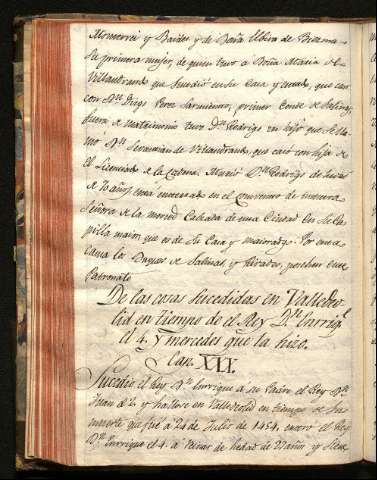 y Baides y de Doña Elvira de
Su primera muger, de quien tuvo a Doña Maria de
Villandrando que Suzedió en su Casa y estado, que casó
con Dn. Diego Perez Sarmiento, primer Conde de Salinas,
fuera de matrimonio tuvo Dn. Rodrigo un hijo que Se lla
mó Dn. de Villandrando, que casó con hija de
el Licenciado de la Murió Dn. Rodrigo de
de 70 años, está enterrado en el convento de nuestra
Señora de la merced Calzada de esta Ciudad en la Ca
pilla maior que es de Su Casa y maiorazgo. Por esta
causa los Duques de Salinas, y poseehen este
Patronato
De las cosas Sucedidas en Vallado
lid en tiempo de el Rey Dn. Enrriq.e
el 4. Y mercedes que la hizo.
Cap. XIX.
Sucedió el Rey Dn. Enrrique a su Padre el Rey Dn.
Juan el 2. y hallose en Valladolid en tiempo de Su
muerte que fué a 20 de Julio de 1454. entró el Rey
Dn. Enrrique el 4. a Reinar de hedad de años y